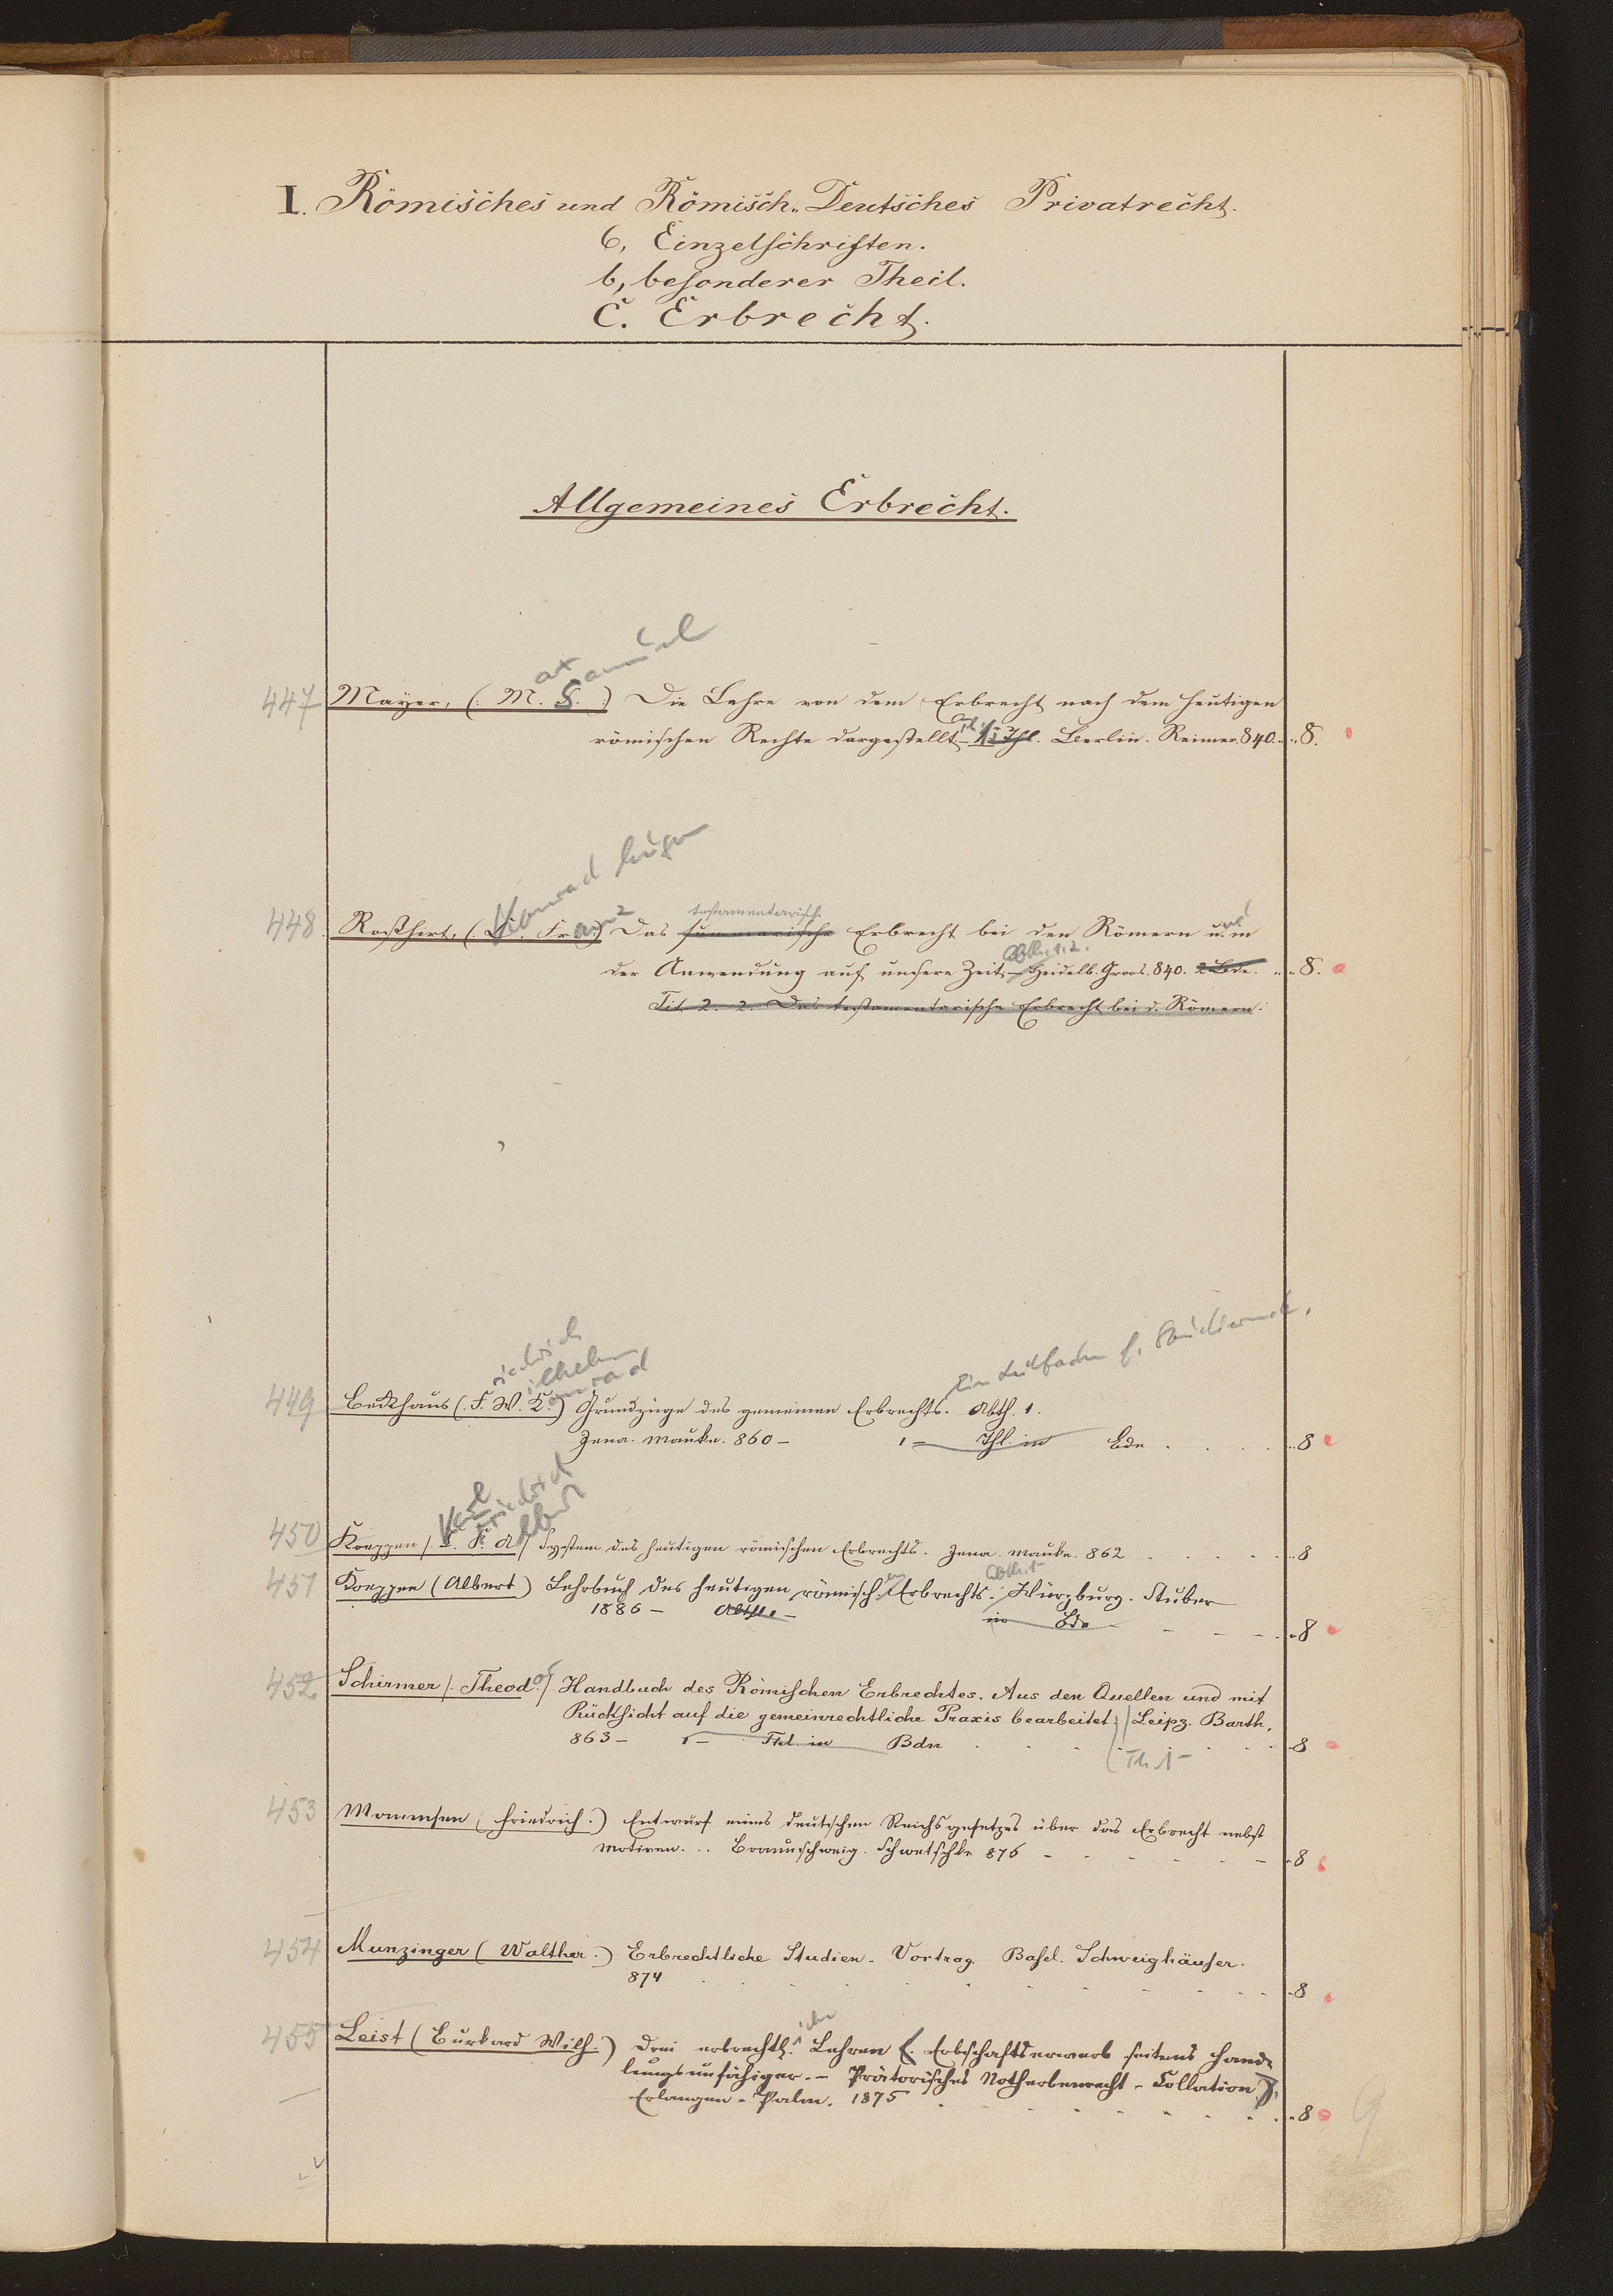 I. Römisches und Römisch-Deutsches Privatrecht.
6, Einzelschriften.
b, besonderer Theil.
C. Erbrecht.
Allgemeines Erbrecht.
ax amuel
447 Mayer, (: M. S. :) Die Lehre von dem Erbrecht nach dem heutigen
römischen Rechte dargestellt. Th. 1 Thl. Berlin. Reimer. 840. 8.
Konrad Eugen
testamentarische
448 Roßhirt, ( Franz ) Das summarische Erbrecht bei den Römern und in
Abth. 1. 2.
der Anwendung auf unsere Zeit. – Heidelb. Groos. 840. 2 Bde. 8.
Tit. 2. 2. Das testamentarische Erbrecht bei d. Römern.
riedrich ilhelm onrad
Ein Leitfaden f. Studierende.
449 Beckhaus (. F. W. K.) Grundzüge des gemeinen Erbrechts. Abth. 1.
Jena. Mauke. 860 – 1 – Thl. in Bdn . . . . 8
Karl Friedrich Albert
450 Koeppen /. K. F. A / System des heutigen römischen Erbrechts. Jena. Mauke. 862 . . . . . 8
Abth. 1
451 Koeppen (Albert) Lehrbuch des heutigen römisch. en Erbrechts. Würzburg. Stuber
1886 – Abthl. – in Bde – – – 8
452 Schirmer /. Theodor / Handbuch des Römischen Erbrechtes. Aus den Quellen und mit
Rücksicht auf die gemeinrechtliche Praxis bearbeitet. Leipz. Barth.
863 – 1 – Thl. in Bdn . . . . . 8
Th. 1 –
453 Mommsen ( Friedrich.) Entwurf eines deutschen Reichsgesetzes über das Erbrecht nebst
Motiven. .. Braunschweig. Schwetschke 876 – – – – 8
454 Munzinger ( Walther.) Erbrechtliche Studien. Vortrag. Basel. Schweighäuser.
874 . . . . . . 8
iche
455 Leist ( Burkard Wilh.) Drei erbrechtl. Lehren (. Erbschaftserwerb seitens Hand-
lungsunfähiger. – Prätorisches Notherbenrecht – Collation ).
Erlangen – Palm. 1875 . . . . . . 8